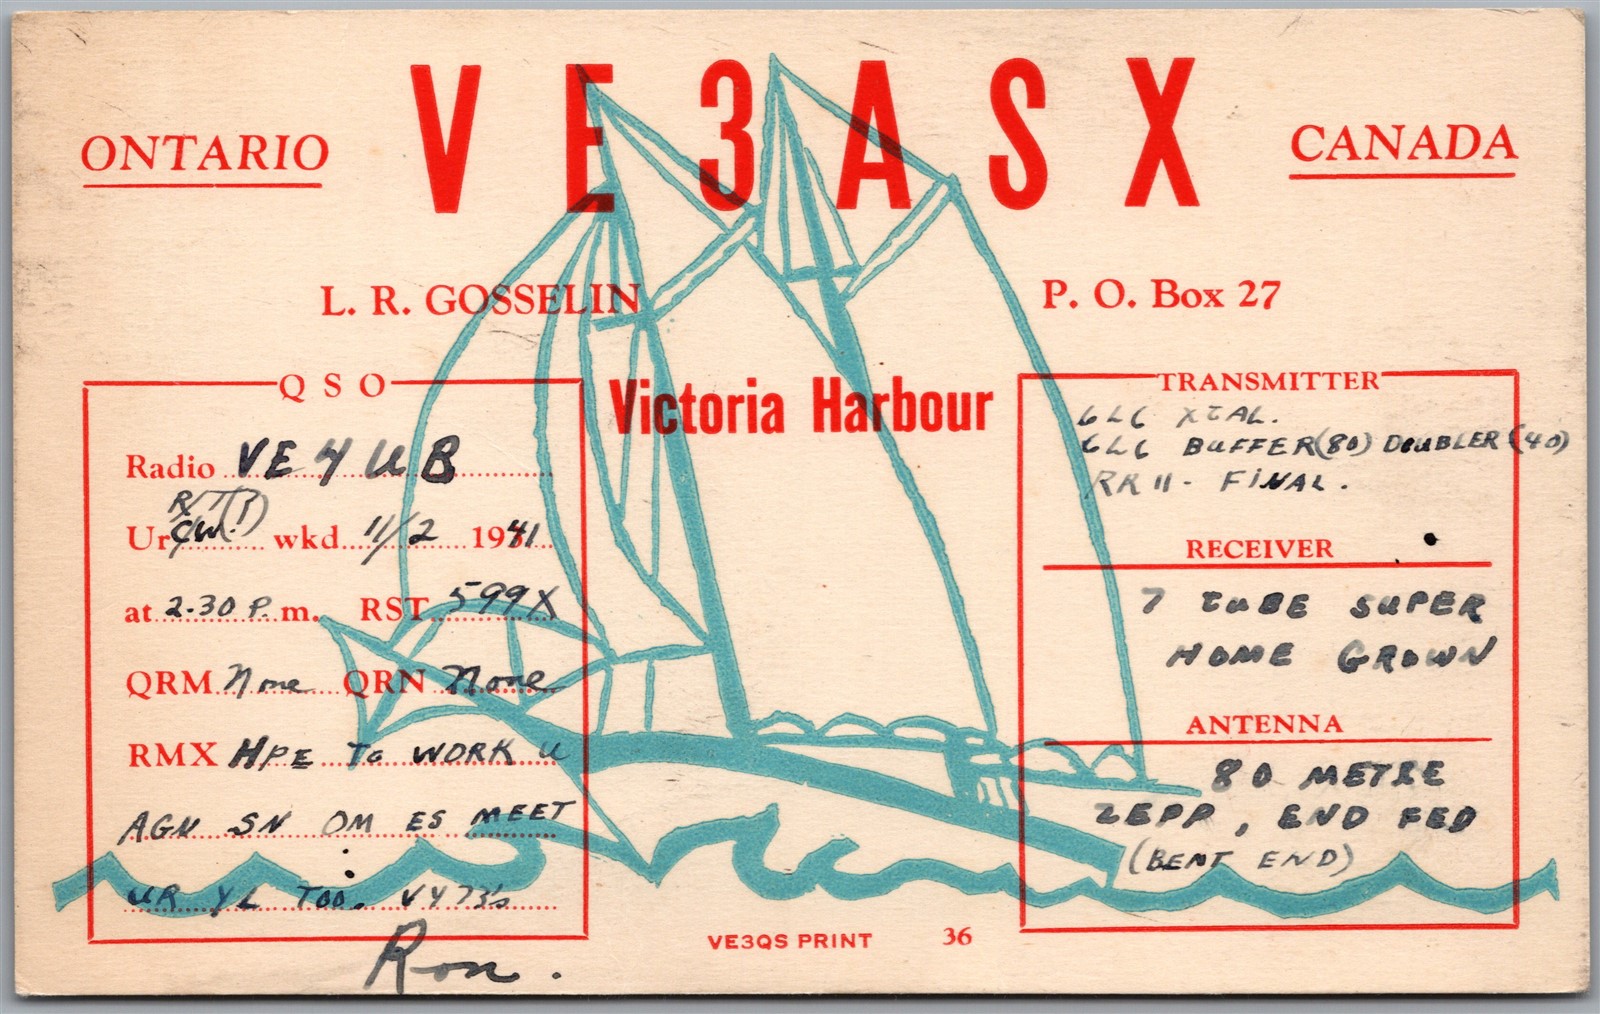 VE3ASX
ONTARIO
CANADA
L. R. GOSSELIN
P. O. Box 27
Victoria Harbour
QSO
Radio VE4UB
Ur CW. wkd 11/2 1941
at 2.30 P. m. RST 599X
QRM None QRN None
RMX HPE TO WORK U
AGN SN OM ES MEET
UR YL TOO. VY 73's
Ron.
TRANSMITTER
6L6 XTAL.
6L6 BUFFER (80) DOUBLER (40)
RR11 - FINAL.
RECEIVER
7 TUBE SUPER
HOME GROWN
ANTENNA
80 METRE
ZEPP, END FED
(BENT END)
VE3QS PRINT 36